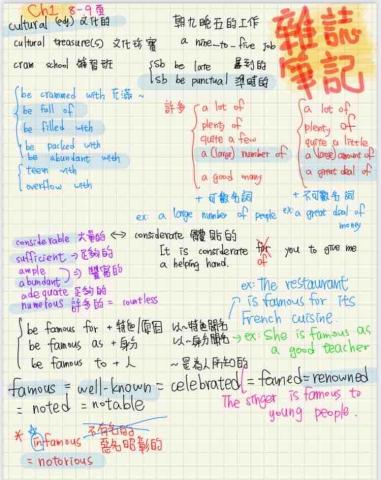 Ch1 8-9頁
雜誌筆記
cultural (adj) 文化的
朝九晚五的工作
cultural treasure(s) 文化珍寶
a nine-to-five job
cram school 補習班
sb be late 遲到的
sb be punctual 準時的
be crammed with 充滿~
be full of
be filled with
be packed with
be abundant with
teem with
overflow with
許多
a lot of
plenty of
quite a few
a (large) number of
a good many
+ 可數名詞
a lot of
plenty of
quite a little
a (large) amount of
a great deal of
+ 不可數名詞
ex: a large number of people
ex: a great deal of money
considerable 大量的 ↔ considerate 體貼的
sufficient → 足夠的
It is considerate for you to give me
of
a helping hand.
ample
abundant
→ 豐富的
adequate 足夠的
numerous 許多的 = countless
ex: The restaurant
is famous for its
French cuisine.
be famous for + 特色/原因 以~特色聞名
be famous as + 身分 以~身分聞名
→ ex: She is famous as
a good teacher
be famous to + 人 ~是為人所知的
famous = well-known = celebrated = famed = renowned
= noted = notable
The singer is famous to
young people.
* infamous 不有名的
惡名昭彰的
= notorious